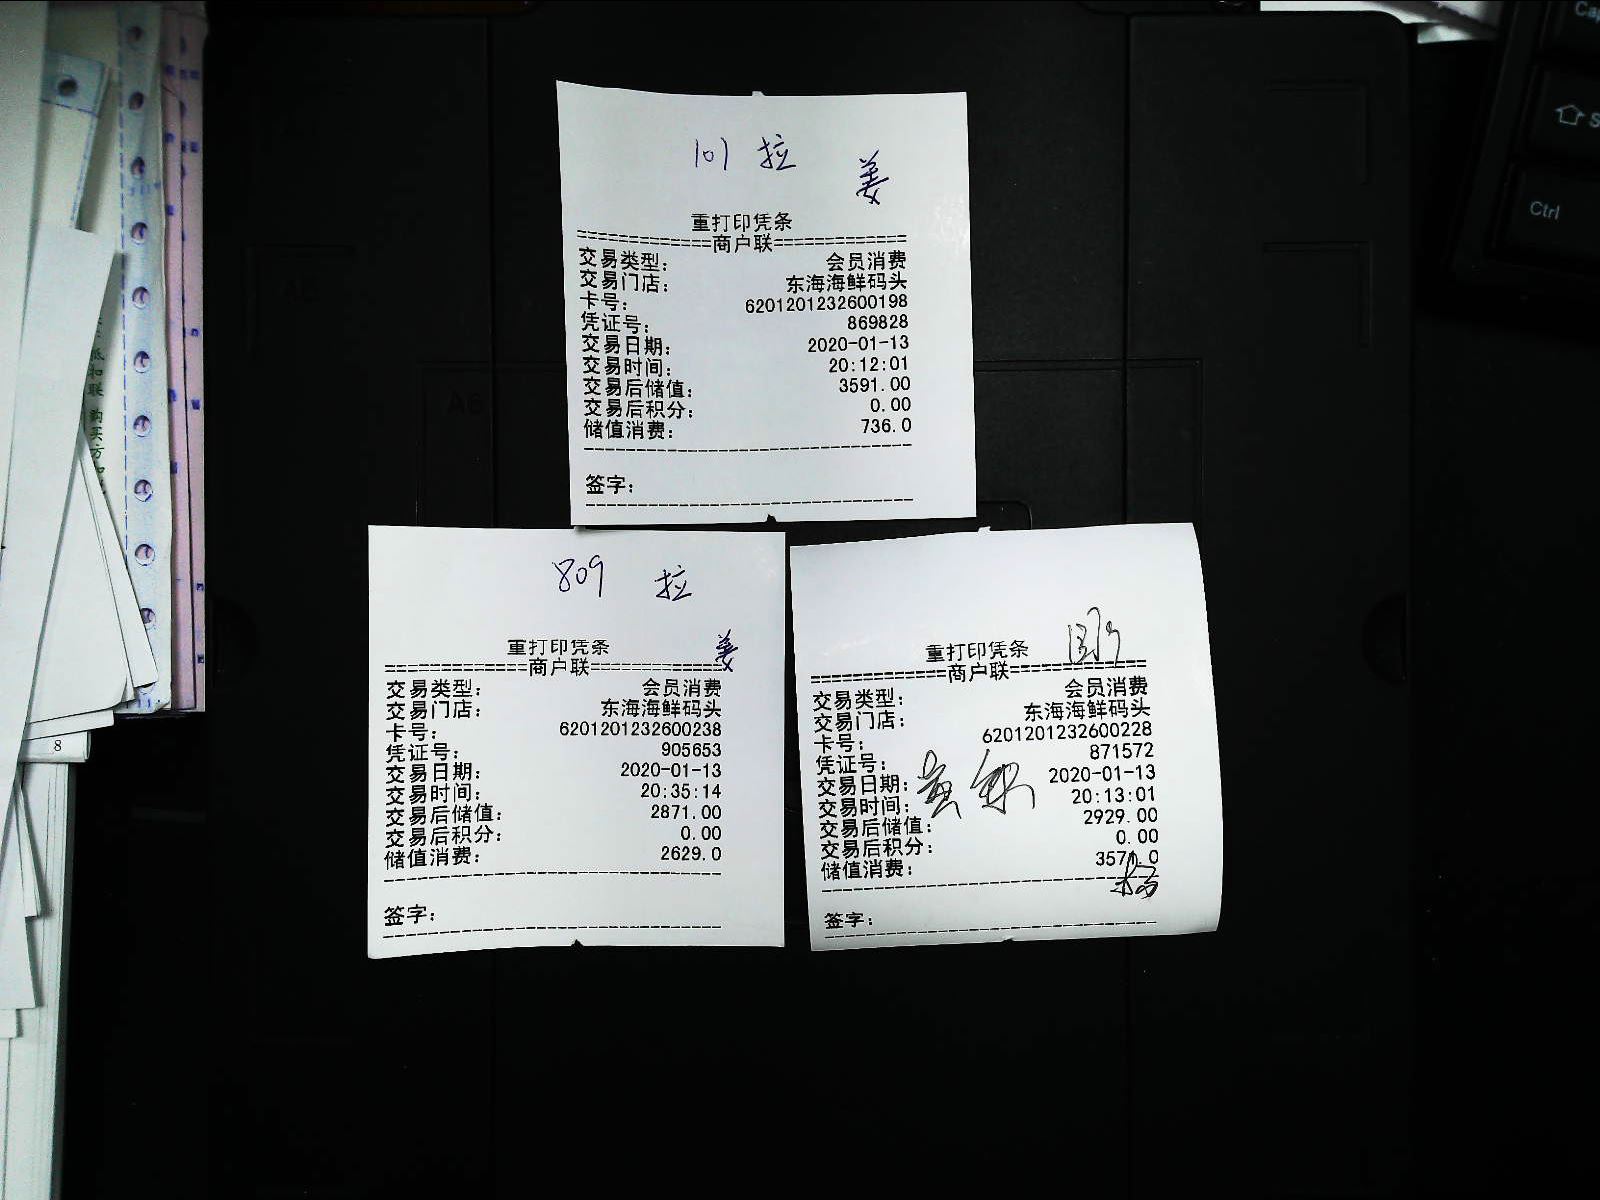 101 拉 姜
重打印凭条
=============商户联=============
交易类型: 会员消费
交易门店: 东海海鲜码头
卡号: 6201201232600198
凭证号: 869828
交易日期: 2020-01-13
交易时间: 20:12:01
交易后储值: 3591.00
交易后积分: 0.00
储值消费: 736.0
签字:
809 拉
姜
重打印凭条
==============商户联=============
交易类型: 会员消费
交易门店: 东海海鲜码头
卡号: 6201201232600238
凭证号: 905653
交易日期: 2020-01-13
交易时间: 20:35:14
交易后储值: 2871.00
交易后积分: 0.00
储值消费: 2629.0
签字:
重打印凭条
=============商户联=============
交易类型: 会员消费
交易门店: 东海海鲜码头
卡号: 6201201232600228
凭证号: 871572
交易日期: 2020-01-13
交易时间: 20:13:01
交易后储值: 2929.00
交易后积分: 0.00
储值消费:
杨
签字:
8
Ctrl
A6